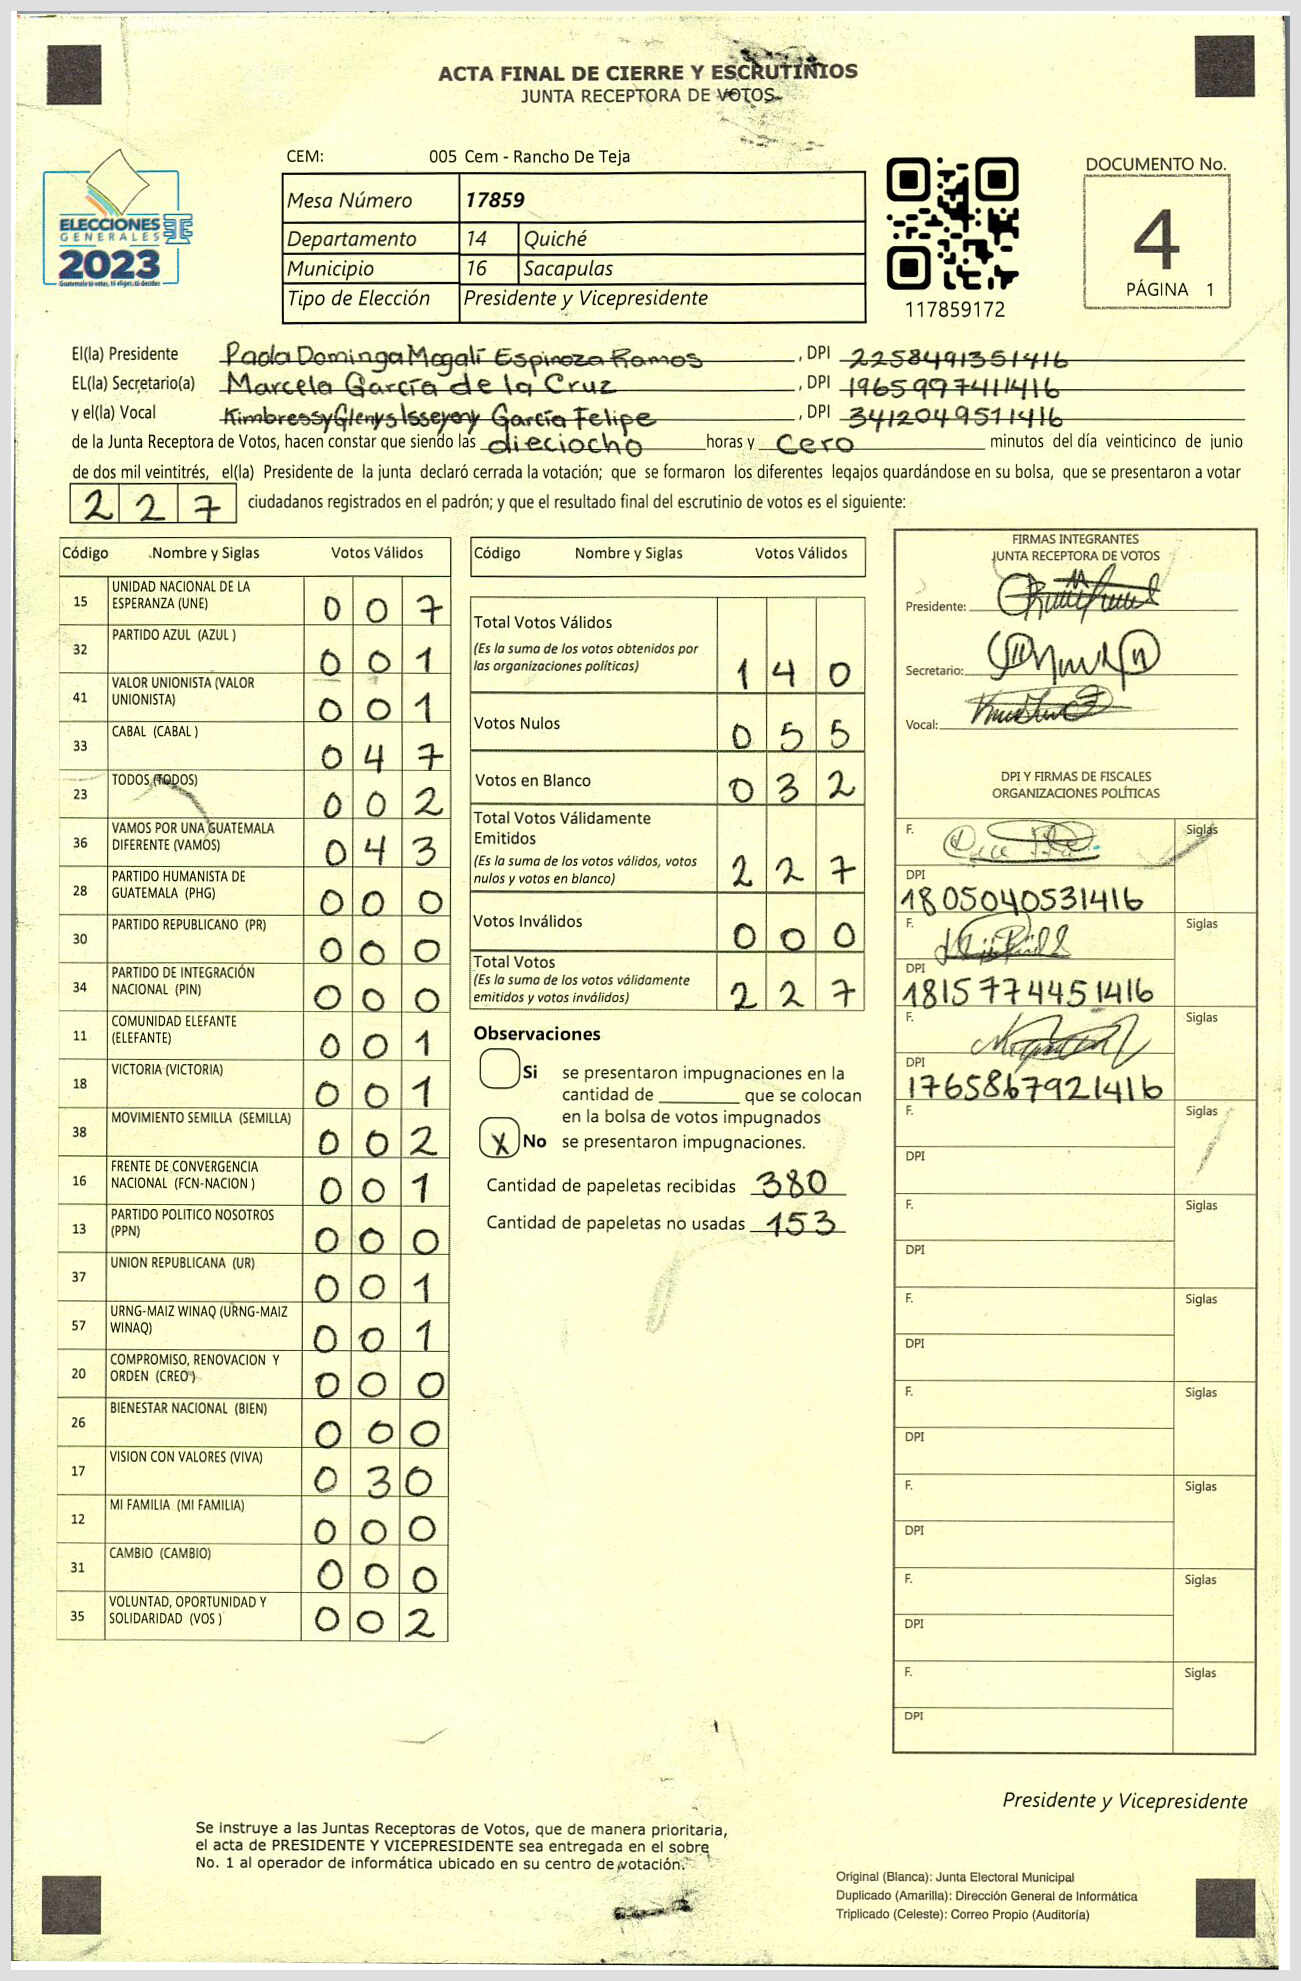 ACTA FINAL DE CIERRE Y ESCRUTINIOS
JUNTA RECEPTORA DE VOTOS
CEM: 005 Cem - Rancho De Teja
ELECCIONES
GENERALES
2023
Guatemala tú votas, tú eliges, tú decides
Mesa Número 17859
Departamento 14 Quiché
Municipio 16 Sacapulas
Tipo de Elección Presidente y Vicepresidente
117859172
DOCUMENTO No.
4
PÁGINA 1
El(la) Presidente Paola Dominga Magalí Espinoza Ramos, DPI 2258491351416
EL(la) Secretario(a) Marcela García de la Cruz, DPI 1965997411416
y el(la) Vocal Kimbressy Glenys Isseyeny García Felipe, DPI 3412049511416
de la Junta Receptora de Votos, hacen constar que siendo las dieciocho horas y cero minutos del día veinticinco de junio
de dos mil veintitrés, el(la) Presidente de la junta declaró cerrada la votación; que se formaron los diferentes legajos quardándose en su bolsa, que se presentaron a votar
227 ciudadanos registrados en el padrón; y que el resultado final del escrutinio de votos es el siguiente:
Código Nombre y Siglas Votos Válidos
15 UNIDAD NACIONAL DE LA ESPERANZA (UNE) 007
32 PARTIDO AZUL (AZUL ) 001
41 VALOR UNIONISTA (VALOR UNIONISTA) 001
33 CABAL (CABAL ) 047
23 TODOS (TODOS) 002
36 VAMOS POR UNA GUATEMALA DIFERENTE (VAMOS) 043
28 PARTIDO HUMANISTA DE GUATEMALA (PHG) 000
30 PARTIDO REPUBLICANO (PR) 000
34 PARTIDO DE INTEGRACIÓN NACIONAL (PIN) 000
11 COMUNIDAD ELEFANTE (ELEFANTE) 001
18 VICTORIA (VICTORIA) 001
38 MOVIMIENTO SEMILLA (SEMILLA) 002
16 FRENTE DE CONVERGENCIA NACIONAL (FCN-NACION ) 001
13 PARTIDO POLITICO NOSOTROS (PPN) 000
37 UNION REPUBLICANA (UR) 001
57 URNG-MAIZ WINAQ (URNG-MAIZ WINAQ) 001
20 COMPROMISO, RENOVACION Y ORDEN (CREO ) 000
26 BIENESTAR NACIONAL (BIEN) 000
17 VISION CON VALORES (VIVA) 030
12 MI FAMILIA (MI FAMILIA) 000
31 CAMBIO (CAMBIO) 000
35 VOLUNTAD, OPORTUNIDAD Y SOLIDARIDAD (VOS ) 002
Código Nombre y Siglas Votos Válidos
Total Votos Válidos
(Es la suma de los votos obtenidos por
las organizaciones políticas) 140
Votos Nulos 055
Votos en Blanco 032
Total Votos Válidamente
Emitidos
(Es la suma de los votos válidos, votos
nulos y votos en blanco) 227
Votos Inválidos 000
Total Votos
(Es la suma de los votos válidamente
emitidos y votos inválidos) 227
Observaciones
Si se presentaron impugnaciones en la
cantidad de ________ que se colocan
en la bolsa de votos impugnados
X No se presentaron impugnaciones.
Cantidad de papeletas recibidas 380
Cantidad de papeletas no usadas 153
FIRMAS INTEGRANTES
JUNTA RECEPTORA DE VOTOS
Presidente:
Secretario:
Vocal:
DPI Y FIRMAS DE FISCALES
ORGANIZACIONES POLÍTICAS
F. Siglas
DPI
1805040531416
F. Siglas
DPI
1815774451416
F. Siglas
DPI
1765867921416
F. Siglas
DPI
F. Siglas
DPI
F. Siglas
DPI
F. Siglas
DPI
F. Siglas
DPI
F. Siglas
DPI
F. Siglas
DPI
Presidente y Vicepresidente
Se instruye a las Juntas Receptoras de Votos, que de manera prioritaria,
el acta de PRESIDENTE Y VICEPRESIDENTE sea entregada en el sobre
No. 1 al operador de informática ubicado en su centro de votación.
Original (Blanca): Junta Electoral Municipal
Duplicado (Amarilla): Dirección General de Informática
Triplicado (Celeste): Correo Propio (Auditoría)